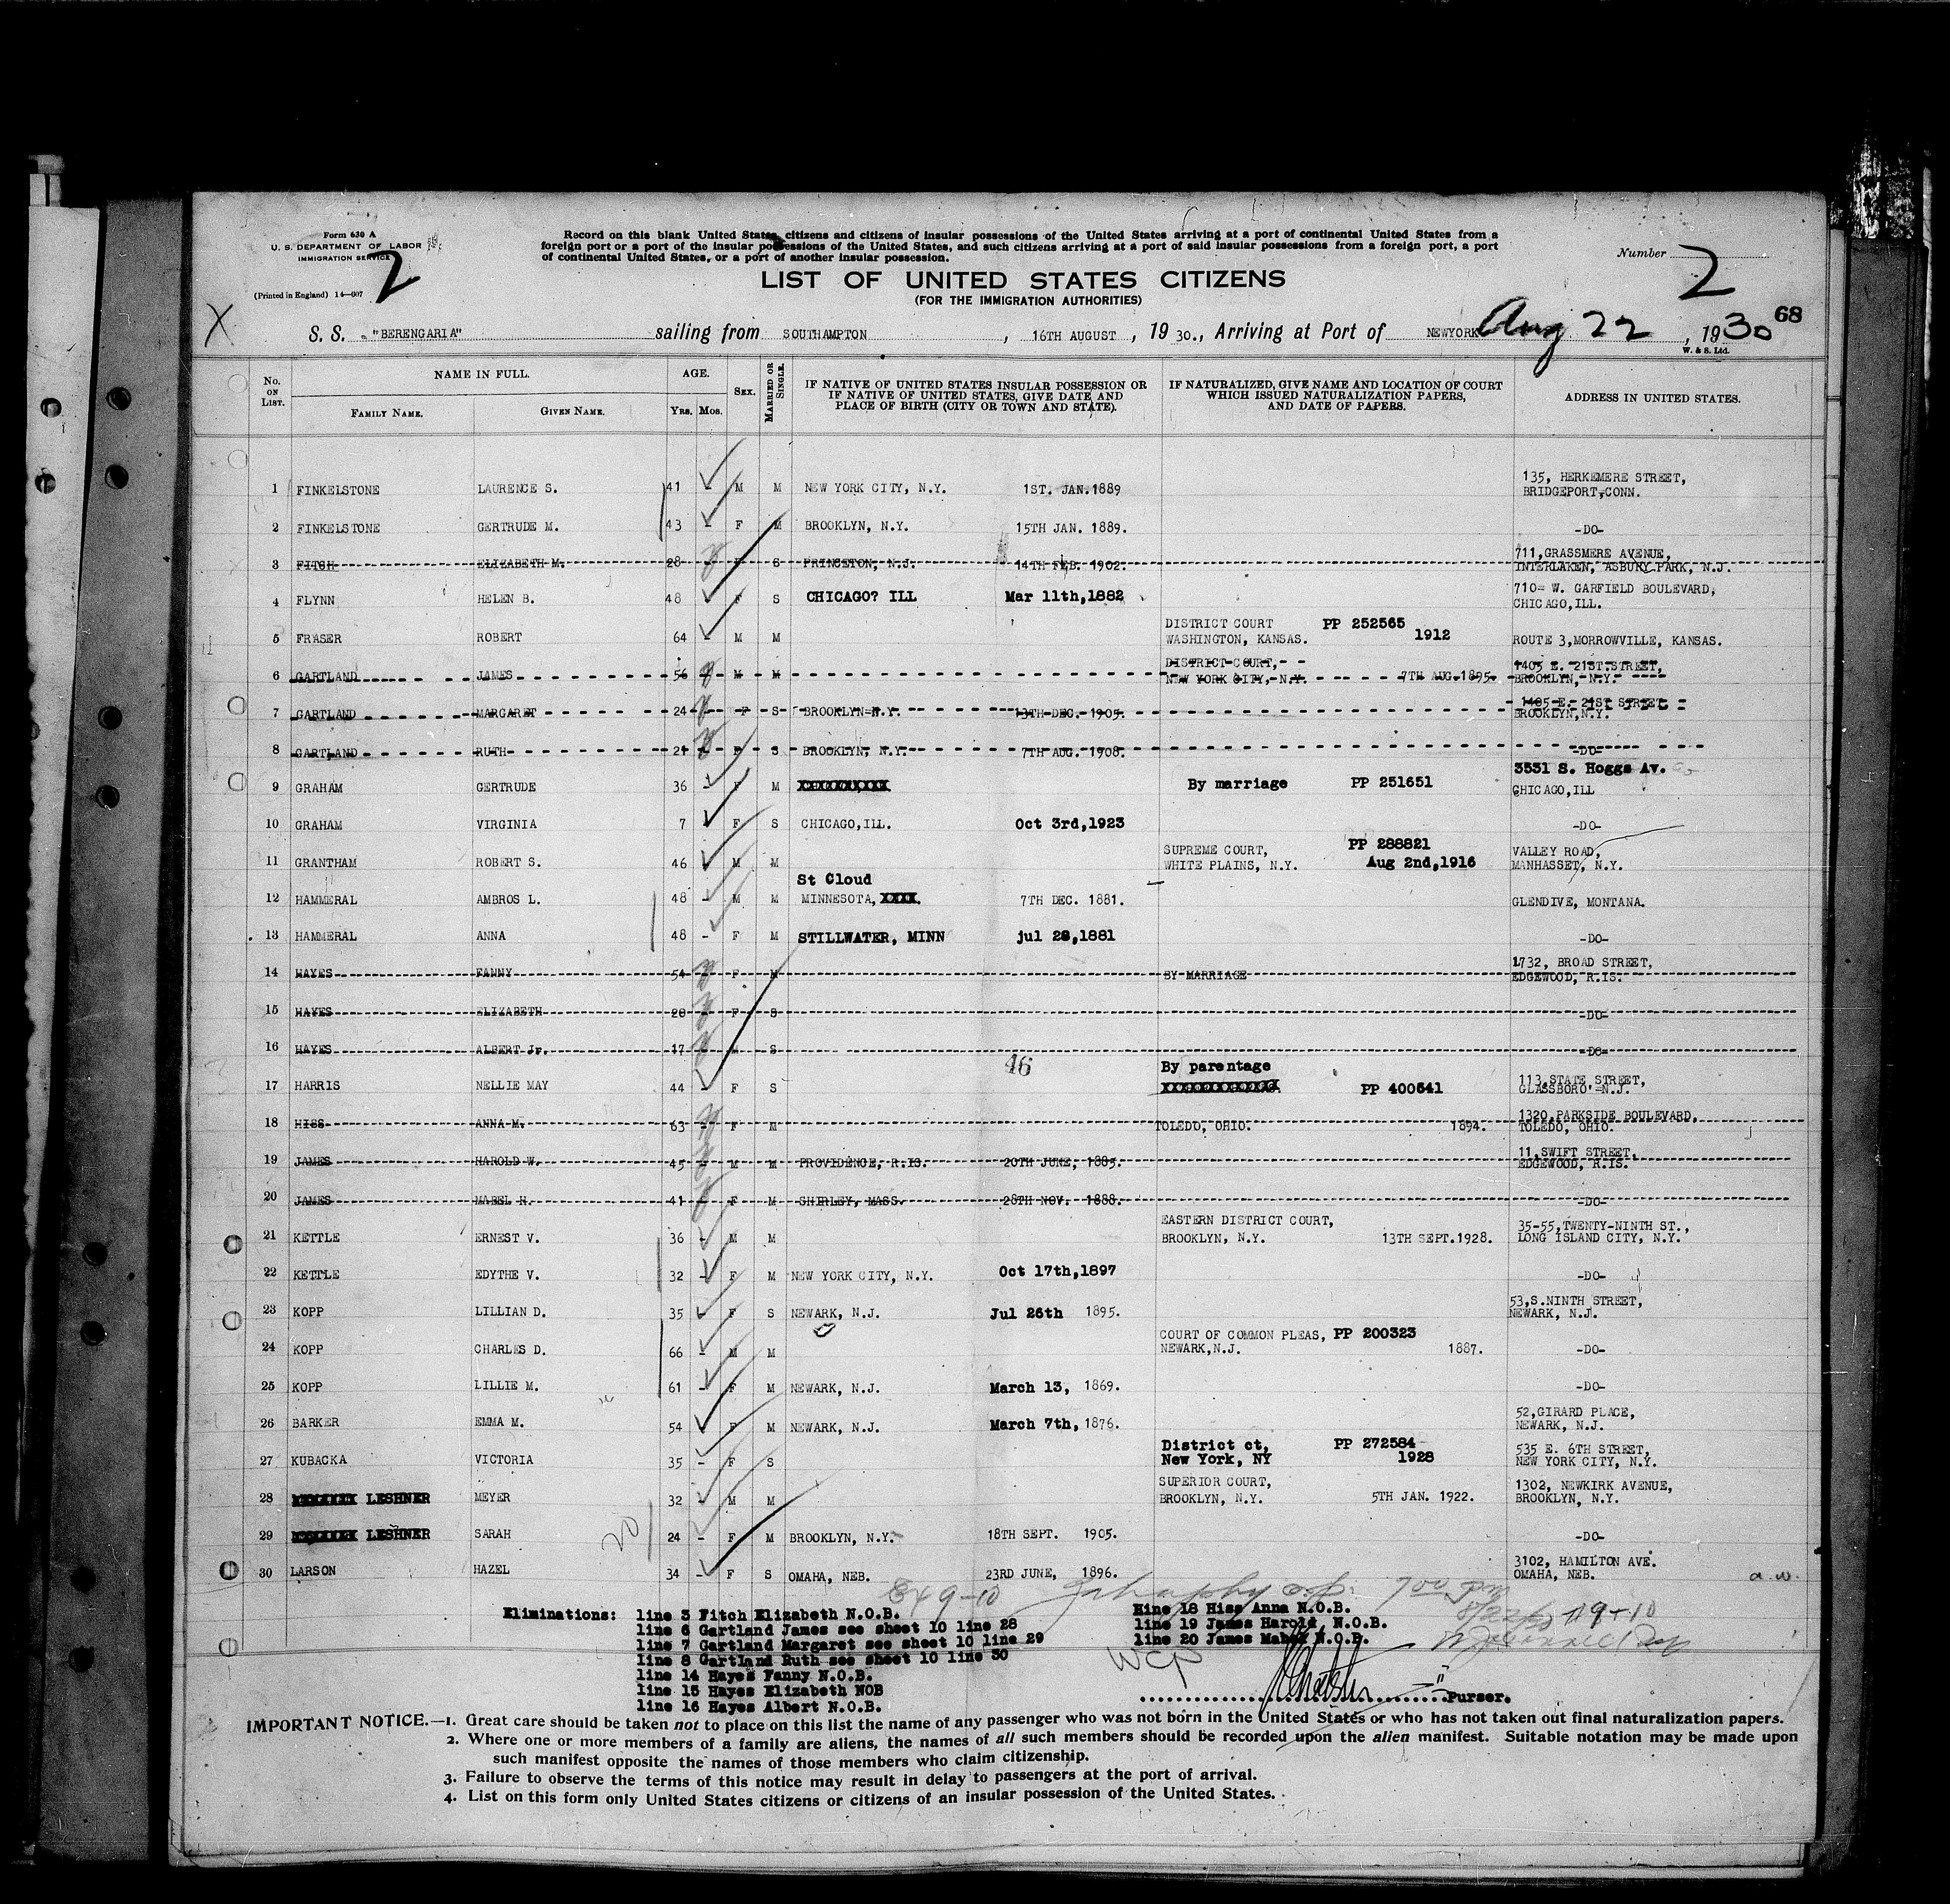 Form 630 A
U. S. DEPARTMENT OF LABOR
IMMIGRATION SERVICE
(Printed in England) 14—007
2
Record on this blank United States citizens and citizens of insular possessions of the United States arriving at a port of continental United States from a
foreign port or a port of the insular possessions of the United States, and such citizens arriving at a port of said insular possessions from a foreign port, a port
of continental United States, or a port of another insular possession.
LIST OF UNITED STATES CITIZENS
(FOR THE IMMIGRATION AUTHORITIES)
Number 2
68
X
S. S. "BERENGARIA" sailing from SOUTHAMPTON, 16TH AUGUST, 1930., Arriving at Port of NEWYORK Aug 22, 1930
W. & S. Ltd.
No. ON LIST. NAME IN FULL. FAMILY NAME. GIVEN NAME. AGE. Yrs. Mos. SEX. MARRIED OR SINGLE. IF NATIVE OF UNITED STATES INSULAR POSSESSION OR IF NATIVE OF UNITED STATES, GIVE DATE AND PLACE OF BIRTH (CITY OR TOWN AND STATE). IF NATURALIZED, GIVE NAME AND LOCATION OF COURT WHICH ISSUED NATURALIZATION PAPERS, AND DATE OF PAPERS. ADDRESS IN UNITED STATES.
1 FINKELSTONE LAURENCE S. 41 - M M NEW YORK CITY, N.Y. 1ST. JAN.1889 135, HERKEMERE STREET, BRIDGEPORT,CONN.
2 FINKELSTONE GERTRUDE M. 43 - F M BROOKLYN, N.Y. 15TH JAN. 1889. -DO-
3 FITCH ELIZABETH M. 28 F S PRINCETON, N.J. 14TH FEB. 1902. 711,GRASSMERE AVENUE, INTERLAKEN, ASBURY PARK, N.J.
4 FLYNN HELEN B. 48 - F S CHICAGO? ILL Mar 11th,1882 710= W. GARFIELD BOULEVARD, CHICAGO,ILL.
5 FRASER ROBERT 64 - M M DISTRICT COURT WASHINGTON, KANSAS. PP 252565 1912 ROUTE 3,MORROWVILLE, KANSAS.
6 GARTLAND JAMES 56 M M DISTRICT COURT, NEW YORK CITY, N.Y. 7TH AUG.1895. 1405 E. 21ST.STREET, BROOKLYN, N.Y.
7 GARTLAND MARGARET 24 F S BROOKLYN=N.Y. 13TH DEC. 1905. 1405 E. 21ST STREET BROOKLYN,N.Y.
8 GARTLAND RUTH 21 F S BROOKLYN, N.Y. 7TH AUG. 1908. -DO-
9 GRAHAM GERTRUDE 36 - F M By marriage PP 251651 3531 S. Hoggs Av. CHICAGO,ILL
10 GRAHAM VIRGINIA 7 F S CHICAGO,ILL. Oct 3rd,1923 -DO-
11 GRANTHAM ROBERT S. 46 - M M SUPREME COURT, WHITE PLAINS, N.Y. PP 288821 Aug 2nd,1916 VALLEY ROAD, MANHASSET, N.Y.
12 HAMMERAL AMBROS L. 48 - M M St Cloud MINNESOTA, XXXX. 7TH DEC. 1881. GLENDIVE, MONTANA.
13 HAMMERAL ANNA 48 - F M STILLWATER, MINN jul 28,1881 -DO-
14 HAYES FANNY 54 F M BY MARRIAGE 1732, BROAD STREET, EDGEWOOD, R.IS.
15 HAYES ELIZABETH 20 F S -DO-
16 HAYES ALBERT Jr. 17 M S -DO-
46
17 HARRIS NELLIE MAY 44 - F S By parentage PP 400641 113,STATE STREET, GLASSBORO'=N.J.
18 HISS ANNA M. 63 F M TOLEDO, OHIO. 1894. 1320,PARKSIDE BOULEVARD, TOLEDO, OHIO.
19 JAMES HAROLD W. 45 M M PROVIDENCE, R.IS. 20TH JUNE, 1885. 11,SWIFT STREET, EDGEWOOD, R.IS.
20 JAMES MABEL R. 41 F M SHIRLEY, MASS. 28TH NOV. 1888. -DO-
21 KETTLE ERNEST V. 36 - M M EASTERN DISTRICT COURT, BROOKLYN, N.Y. 13TH SEPT.1928. 35-55,TWENTY-NINTH ST., LONG ISLAND CITY, N.Y.
22 KETTLE EDYTHE V. 32 - F M NEW YORK CITY, N.Y. Oct 17th,1897 -DO-
23 KOPP LILLIAN D. 35 - F S NEWARK, N.J. Jul 26th 1895. 53,S.NINTH STREET, NEWARK, N.J.
24 KOPP CHARLES D. 66 - M M COURT OF COMMON PLEAS, NEWARK,N.J. PP 200323 1887. -DO-
25 KOPP LILLIE M. 61 - F M NEWARK, N.J. March 13, 1869. -DO-
26 BARKER EMMA M. 54 - F M NEWARK, N.J. March 7th, 1876. 52,GIRARD PLACE, NEWARK, N.J.
27 KUBACKA VICTORIA 35 - F S District ct, New York, NY PP 272584 1928 535 E. 6TH STREET, NEW YORK CITY, N.Y.
28 LESHNER MEYER 32 - M M SUPERIOR COURT, BROOKLYN, N.Y. 5TH JAN. 1922. 1302, NEWKIRK AVENUE, BROOKLYN, N.Y.
29 LESHNER SARAH 24 - F M BROOKLYN, N.Y. 18TH SEPT. 1905. -DO-
20
30 LARSON HAZEL 34 - F S OMAHA, NEB. 23RD JUNE, 1896. 3102, HAMILTON AVE. OMAHA, NEB.
a.w.
849-10
700 pm
Eliminations: line 3 Fitch Elizabeth N.O.B.
line 6 Gartland James see sheet 10 line 28
line 7 Gartland Margaret see sheet 10 line 29
line 8 Gartland Ruth see sheet 10 line 30
line 14 Hayes Fanny N.O.B.
line 15 Hayes Elizabeth NOB
line 16 Hayes Albert N.O.B.
Hine 18 Hiss Anna N.O.B.
line 19 James Harold N.O.B.
line 20 James Mabel N.O.B.
WCP
Purser.
IMPORTANT NOTICE.—1. Great care should be taken not to place on this list the name of any passenger who was not born in the United States or who has not taken out final naturalization papers.
2. Where one or more members of a family are aliens, the names of all such members should be recorded upon the alien manifest. Suitable notation may be made upon
such manifest opposite the names of those members who claim citizenship.
3. Failure to observe the terms of this notice may result in delay to passengers at the port of arrival.
4. List on this form only United States citizens or citizens of an insular possession of the United States.